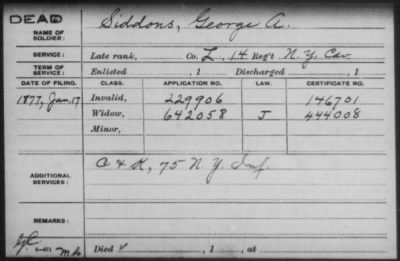 DEAD
NAME OF SOLDIER: Siddons, George A.
SERVICE: Late rank, Co. L, 14 Reg't N.Y. Cav.
TERM OF SERVICE: Enlisted , 1 Discharged , 1
DATE OF FILING. CLASS. APPLICATION NO. LAW. CERTIFICATE NO.
1877, Jan. 17 Invalid, 229906 146701
Widow, 642058 J 444008
Minor,
ADDITIONAL SERVICES: C & K, 75 N.Y. Inf.
REMARKS:
Died , 1 , at